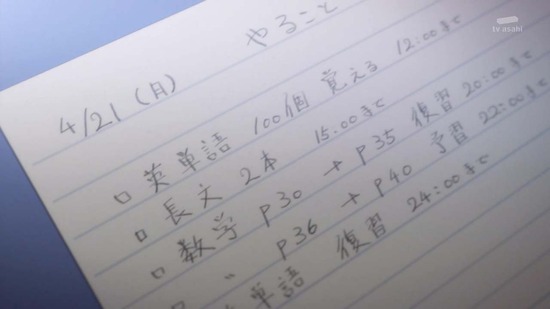 tv asahi
やること
4/21(月)
□ 英単語 100個 覚える 12:00まで
□ 長文 2本 15:00まで
□ 数学 p30 → p35 復習 20:00まで
□ 〃 p36 → p40 予習 22:00まで
単語 復習 24:00まで